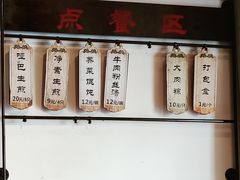 点餐区
哑巴生煎
20元/8只
净素生煎
9元/4只
荠菜馄饨
12元/碗
牛肉粉丝汤
12元/碗
大肉棕
10元/只
打包盒
1元/个